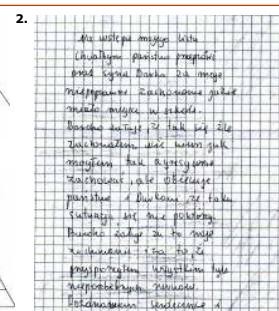 2.
Na wstępie mojego listu
chciałbym państwa przeprosić
oraz syna Darka za moje
niepoprawne zachowanie jakie
miało miejsce w szkole.
Bardzo żałuję, że tak się źle
zachowałem nie wiem jak
mogłem tak agresywnie
zachować, ale obiecuję
państwu i Darkowi, że taka
sytuacja się nie powtórzy.
Bardzo żałuję za to moje
zachowanie i za to, że
przysporzyłem wszystkim tyle
niepotrzebnych nerwów.
Pozdrawiam serdecznie i